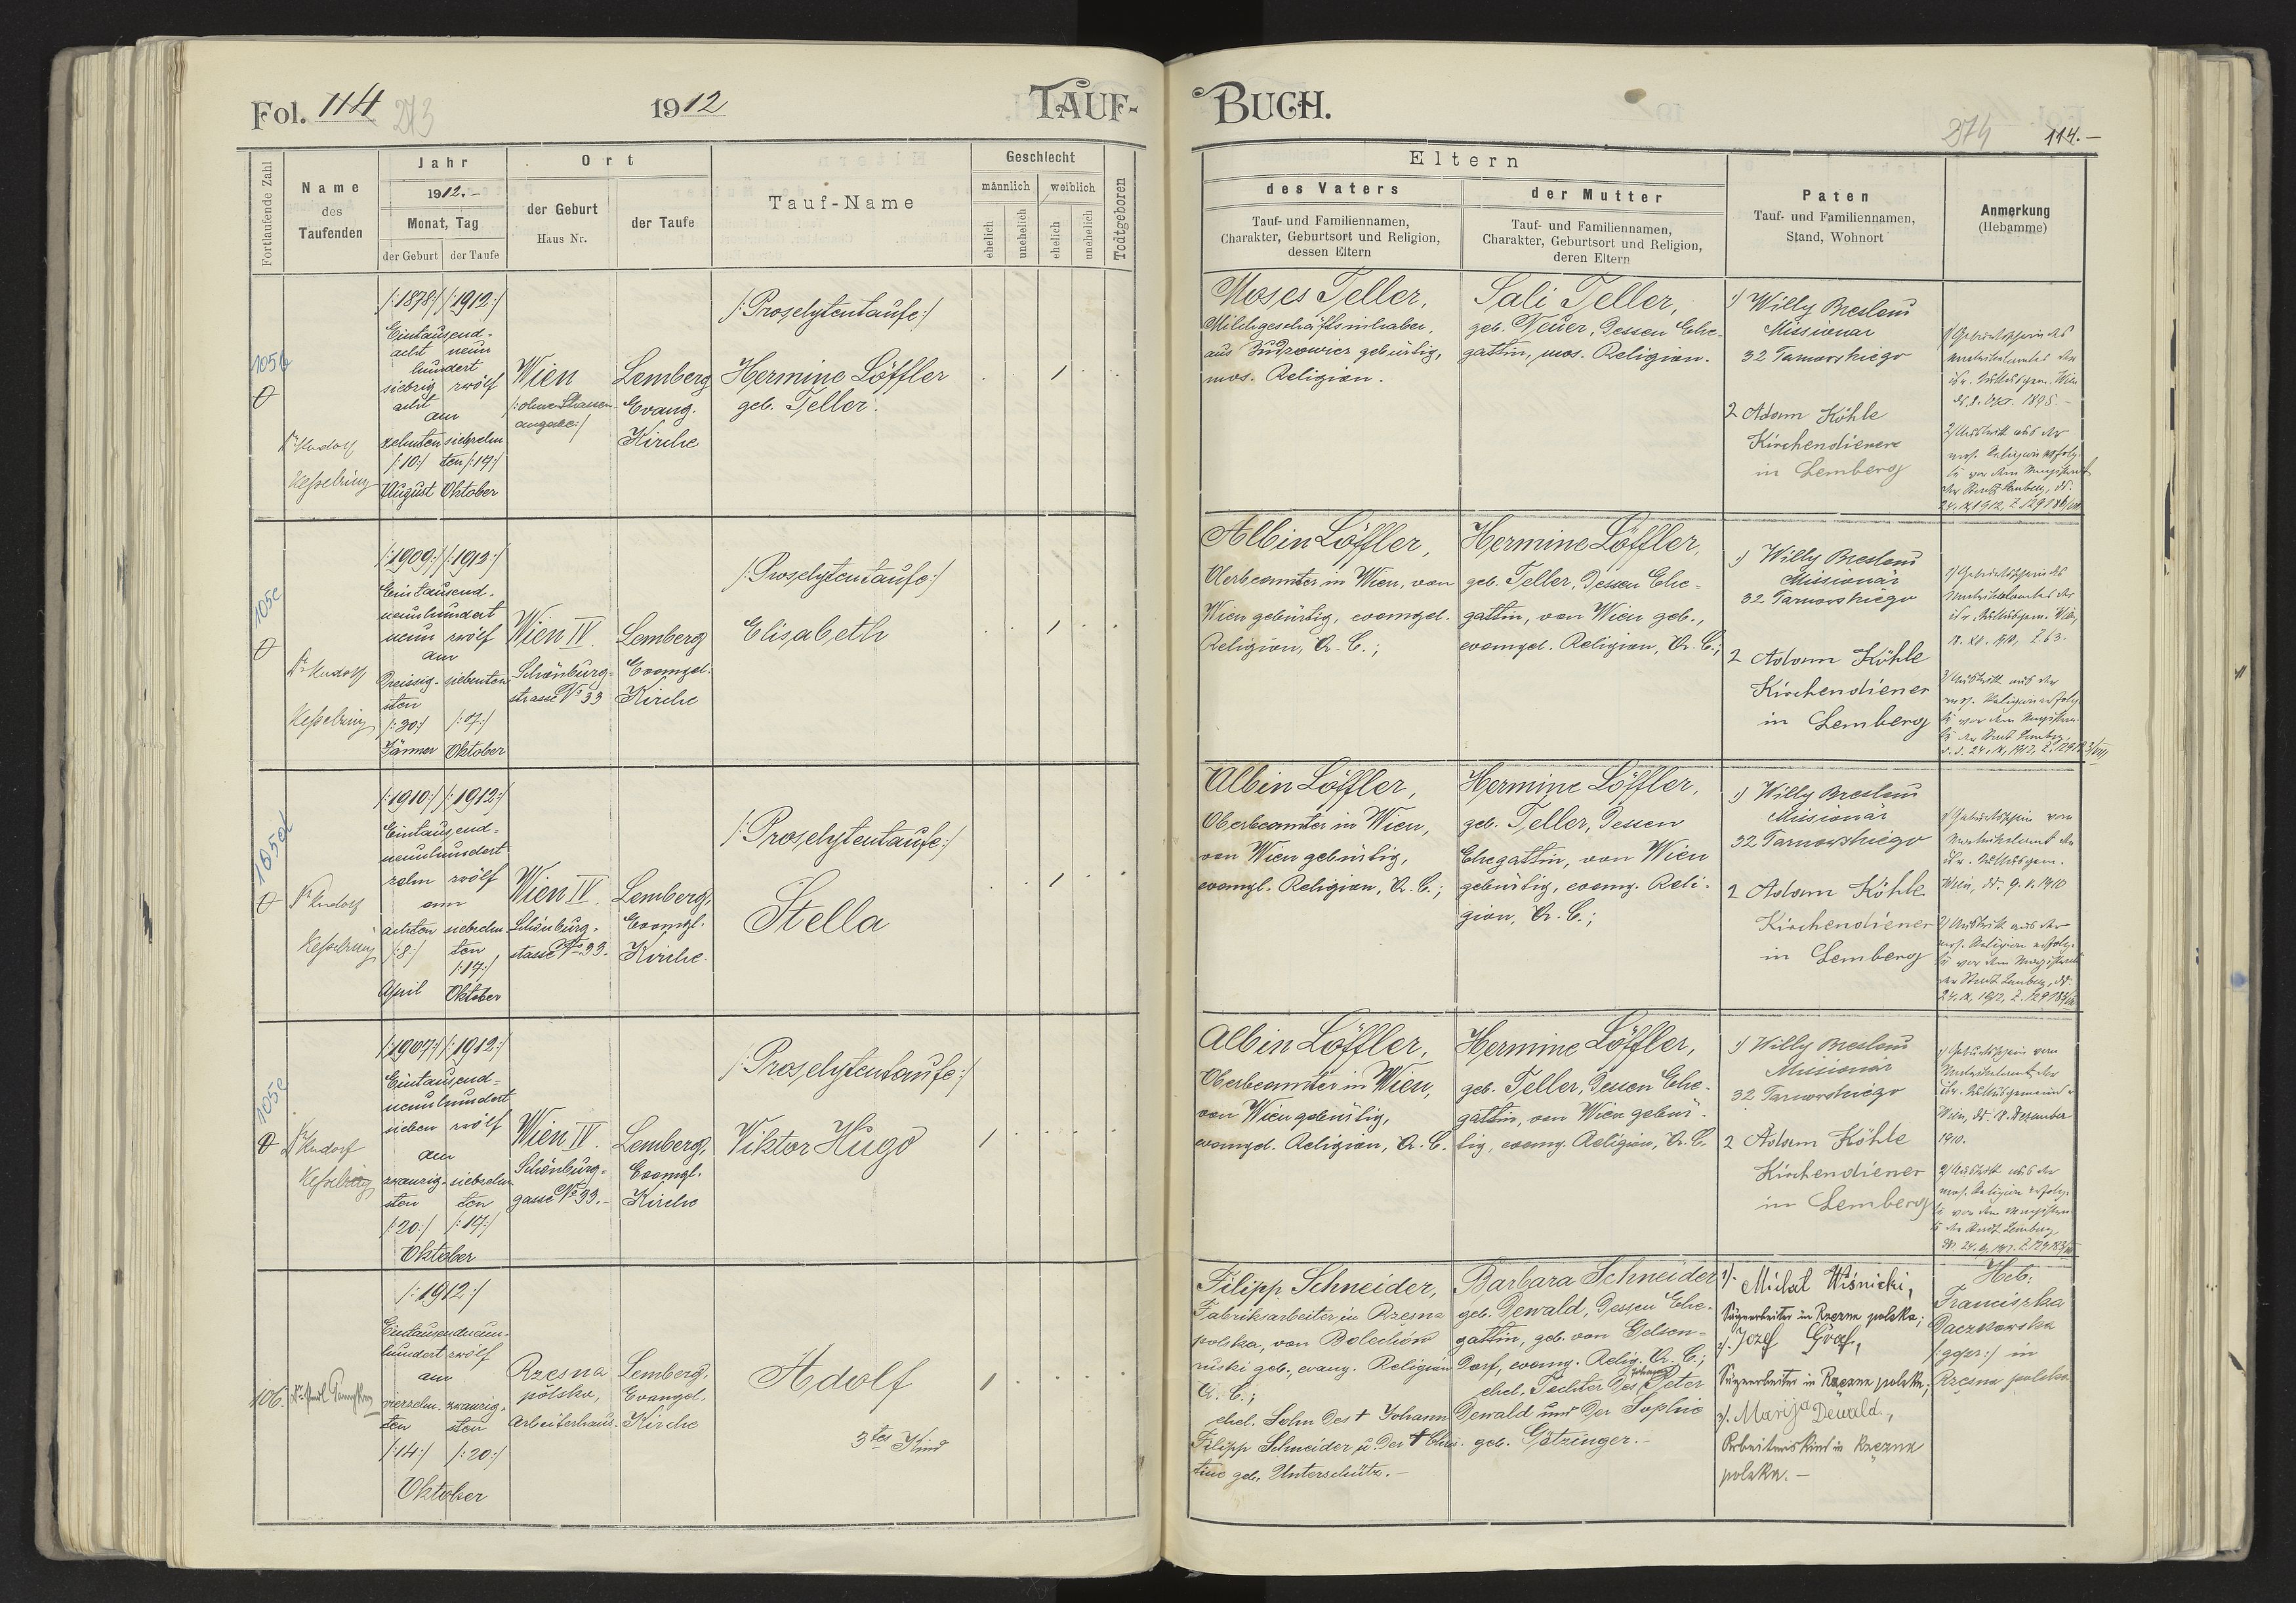 Fol. 114 273
1912
TAUF-
BUCH.
274 114.-
Fortlaufende Zahl
Name
des
Taufenden
Jahr
1912.-
Monat, Tag
der Geburt
der Taufe
Ort
der Geburt
Haus Nr.
der Taufe
Tauf-Name
Geschlecht
männlich
weiblich
ehelich
unehelich
ehelich
unehelich
Todtgeboren
Eltern
des Vaters
Tauf- und Familiennamen,
Charakter, Geburtsort und Religion,
dessen Eltern
der Mutter
Tauf- und Familiennamen,
Charakter, Geburtsort und Religion,
deren Eltern
Paten
Tauf- und Familiennamen,
Stand, Wohnort
Anmerkung
(Hebamme)
105b
Dr Rudolf
Kesselring
/:1878:/
Eintausend-
acht
hundert
siebzig
acht
am
zehnten
/:10:/
August
/:1912:/
neun
zwölf
siebzehn
ten /:17:/
Oktober
Wien
/:ohne Strassen-
angabe:/
Lemberg
Evang.
Kirche
/:Proselytentaufe:/
Hermine Löffler
geb. Teller.
1
Moses Teller,
Milchgeschäftsinhaber,
gebürtig,
mos. Religion.
Sali Teller,
geb. Neuer, dessen Ehe-
gattin, mos. Religion.
1) Willy Breslau
Missionar
32 Tarnowskiego
2 Adam Köhle
Kirchendiener
in Lemberg
1) Geburtsschein des
Matrikelamtes der
isr. Kultusgem. Wien
2) Austritt aus der
mos. Religion erfolg-
te vor dem Magistrat
der Stadt Lemberg, dt.
105c
Dr Rudolf
Kesselring
/:1909:/
Eintausend-
neunhundert
neun
am
Dreissig-
sten
/:30:/
Jänner
/:1912:/
zwölf
siebenten
/:17:/
Oktober
Wien IV.
Schönburg-
strasse No 33
Lemberg
Evangel.
Kirche
/:Proselytentaufe:/
Elisabeth
1
Albin Löffler,
Oberbeamter in Wien, von
Wien gebürtig, evangel.
Religion, A. C.;
Hermine Löffler,
geb. Teller, dessen Ehe-
gattin, von Wien geb.,
evangel. Religion, A. C.;
1) Willy Breslau
Missionär
32 Tarnowskiego
2 Adam Köhle
Kirchendiener
in Lemberg
1) Geburtsschein des
Matrikelamtes der
isr. Kultusgem. Wien,
2) Austritt aus der
mos. Religion erfolg-
te vor dem Magistra-
te der Stadt Lemberg,
105d
Dr Rudolf
Kesselring
/:1910:/
Eintausend-
neunhundert
zehn
am
achten
/:8:/
April
/:1912:/
zwölf
siebzehn-
ten
/:17:/
Oktober
Wien IV.
Schönburg-
stasse No 33.
Lemberg,
Evangl.
Kirche.
/:Proselytentaufe:/
Stella
1
Albin Löffler,
Oberbeamter in Wien,
von Wien gebürtig,
evangl. Religion, A. C.;
Hermine Löffler,
geb. Teller, dessen
Ehegattin, von Wien
gebürtig, evang. Reli-
gion, A. C.;
1) Willy Breslau
Missionär
32 Tarnowskiego
2 Adam Köhle
Kirchendiener
in Lemberg
1) Geburtsschein vom
Matrikelamt der
isr. Kultusgem.
Wien, dt. 9. V. 1910
2) Austritt aus der
mos. Religion erfolg-
te vor dem Magistrate
der Stadt Lemberg, dt.
105e
Dr Rudolf
Kesselring
/:1907:/
Eintausend-
neunhundert
sieben
am
zwanzig-
sten
/:20:/
/:1912:/
zwölf
siebzehn-
ten
/:17:/
Oktober
Wien IV.
Schönburg-
gasse No 33.-
Lemberg,
Evangl.
Kirche
/:Proselytentaufe:/
Viktor Hugo
1
Albin Löffler,
Oberbeamter in Wien,
von Wien gebürtig,
evangel. Religion, A. C.
Hermine Löffler,
geb. Teller, dessen Ehe-
gattin, von Wien gebür-
tig, evang. Religion, A. C.
1) Willy Breslau
Missionär
32 Tarnowskiego
2 Adam Köhle
Kirchendiener
in Lemberg
1) Geburtsschein vom
Matrikelamt der
isr. Kultusgemeinde
Wien, dt. 18. Dezember
1910.
2) Austritt aus der
mos. Religion erfolg-
te vor dem Magistra-
te der Stadt Lemberg,
106.
/:1912:/
Eintausendneun-
hundert zwölf
am
vierzehn-
ten
/:14:/
zwanzig-
sten
/:20:/
Oktober
Rzesna
polska,
Arbeiterhaus.
Lemberg,
Evangel.
Kirche
Adolf
3tes Kind
1
Filipp Schneider,
Fabriksarbeiter in Rzesna
polska, von Bolechów
ruski geb., evang. Religion
A. C.;
ehel. Sohn des † Johann
Filipp Schneider u. der † Chris-
tine geb. Unterschütz.-
Barbara Schneider
geb. Dewald, dessen Ehe-
gattin, geb. von Gelsen-
dorf, evang. Relig. A. C.;
ehel. Tochter des Johann Peter
Dewald und der Sophie
geb. Götzinger.-
1). Michał Wiśnicki,
Sägearbeiter in Rzezna polska;
2). Jozef Graf,
Sägearbeiter in Rzezna polska;
3). Marija Dewald,
Arbeiterskind in Rzezna
polska.-
Heb:
Franciszka
Daczkowska
/:gepr:/ in
Rzesna polska